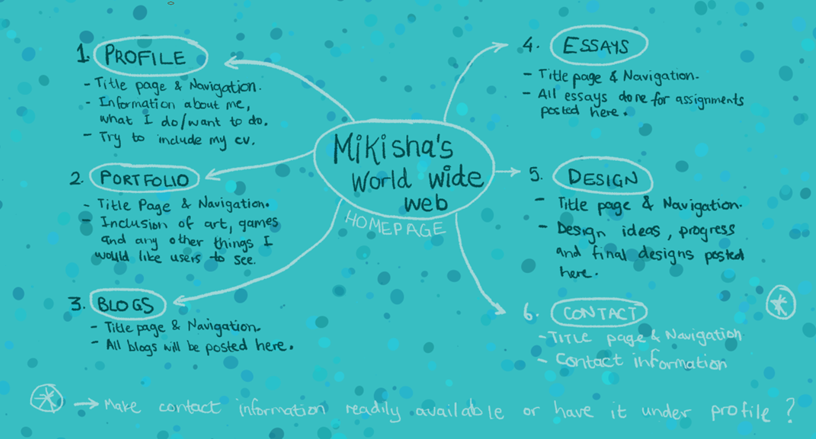 Mikisha's
World wide
web
HOMEPAGE
1. PROFILE
- Title page & Navigation.
- Information about me,
what I do/want to do.
- Try to include my cv.
2. PORTFOLIO
- Title Page & Navigation.
- Inclusion of art, games
and any other things I
would like users to see.
3. BLOGS
- Title page & Navigation.
- All blogs will be posted here.
4. ESSAYS
- Title page & Navigation.
- All essays done for assignments
posted here.
5. DESIGN
- Title page & Navigation.
- Design ideas, progress
and final designs posted
here.
6. CONTACT
- Title page & Navigation
- Contact information
* → Make contact information readily available or have it under profile?
*